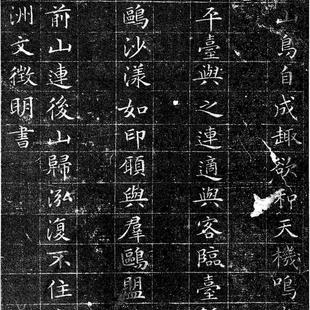 山鳥自成趣欲和天機鳴
平臺與之連適與客臨臺
鷗沙漾如印願與羣鷗盟
前山連後山歸泓復不住
洲文徵明書